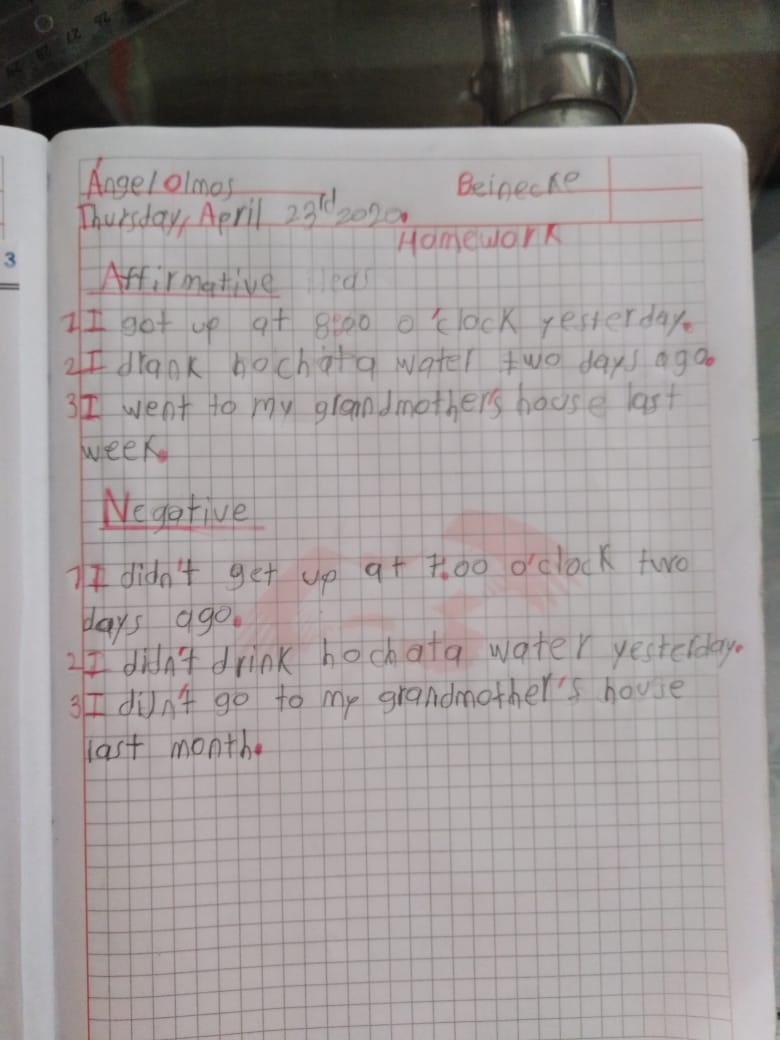 26
27
28
29
3
Ángel Olmos Beinecke
Thursday, April 23rd 2020.
Homework
Affirmative
1 I got up at 8:00 o'clock yesterday.
2 I drank hochata water two days ago.
3 I went to my grandmother's house last
week.
Negative
1 I didn't get up at 7:00 o'clock two
days ago.
2 I didn't drink hochata water yesterday.
3 I didn't go to my grandmother's house
last month.